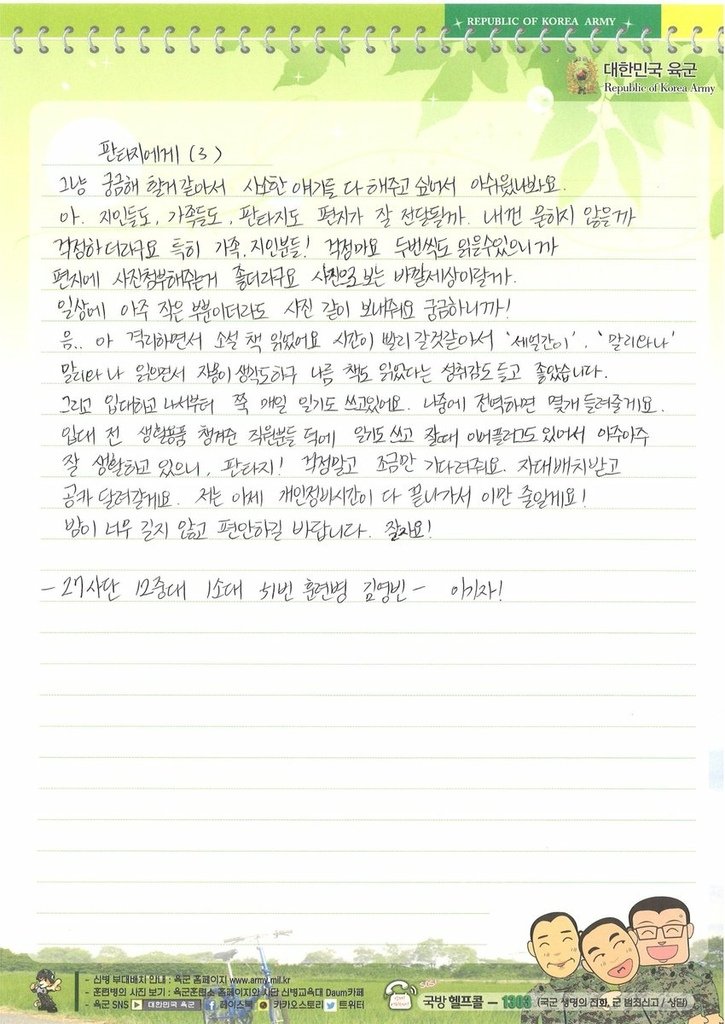 REPUBLIC OF KOREA ARMY
대한민국 육군
Republic of Korea Army
판타지에게 (3)
그냥 궁금해 할거 같아서 사소한 얘기들 다 해주고 싶어서 아쉬웠나봐요.
아. 지인들도, 가족들도, 판타지도 편지가 잘 전달될까. 내껀 묻히지 않을까
걱정하더라구요 특히 가족, 지인분들! 걱정마요 두번씩도 읽을수있으니까
편지에 사진첨부해주는게 좋더라구요 사진으로 보는 바깥세상이랄까.
일상에 아주 작은 부분이더라도 사진 같이 보내줘요 궁금하니까!
음.. 아 격리하면서 소설 책 읽었어요 시간이 빨리 갈것같아서 '세얼간이', '말리와 나'
말리와 나 읽으면서 자몽이 생각도하구 나름 책도 읽었다는 성취감도 들고 좋았습니다.
그리고 입대하고 나서부터 쭉 매일 일기도 쓰고있어요. 나중에 전역하면 몇개 들려줄게요.
입대 전 생활용품 챙겨준 직원분들 덕에 일기도 쓰고 잘때 이어플러그도 있어서 아주아주
잘 생활하고 있으니, 판타지! 걱정말고 조금만 기다려줘요. 자대배치받고
공카 달려갈게요. 저는 이제 개인정비시간이 다 끝나가서 이만 줄일게요!
밤이 너무 길지 않고 편안하길 바랍니다. 잘자요!
- 27사단 12중대 1소대 51번 훈련병 김영빈 - 이기자!
- 신병 부대배치 안내 : 육군 홈페이지 www.army.mil.kr
- 훈련병의 사진 보기 : 육군훈련소 홈페이지와 사단 신병교육대 Daum카페
- 육군 SNS 대한민국 육군 페이스북 카카오스토리 트위터
국방 헬프콜 - 1303 (국군 생명의 전화, 군 범죄신고 / 상담)